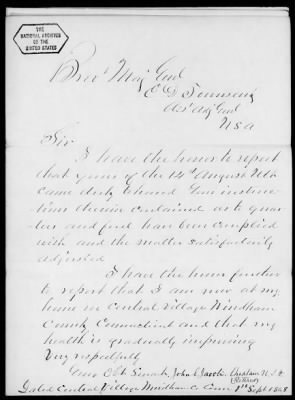 THE
NATIONAL ARCHIVES
OF THE
UNITED STATES
Brevt Maj Genl
E D Townsend
Asst Adj Genl
USA
Sir
I have the honor to report
that yours of the 12th August Ult
came duly to hand Your instruc
tions therein contained as to quar
ters and fuel have been complied
with and the matter satisfactorily
adjusted
I have the honor further
to report that I am now at my
home in Central Village Windham
County Connecticut and that my
health is gradually improving
Very respectfully
Your Obt Servant, John Chaplain U.S.A
(Retired)
Dated Central Village Windham Co Conn 1st Sept. 1868